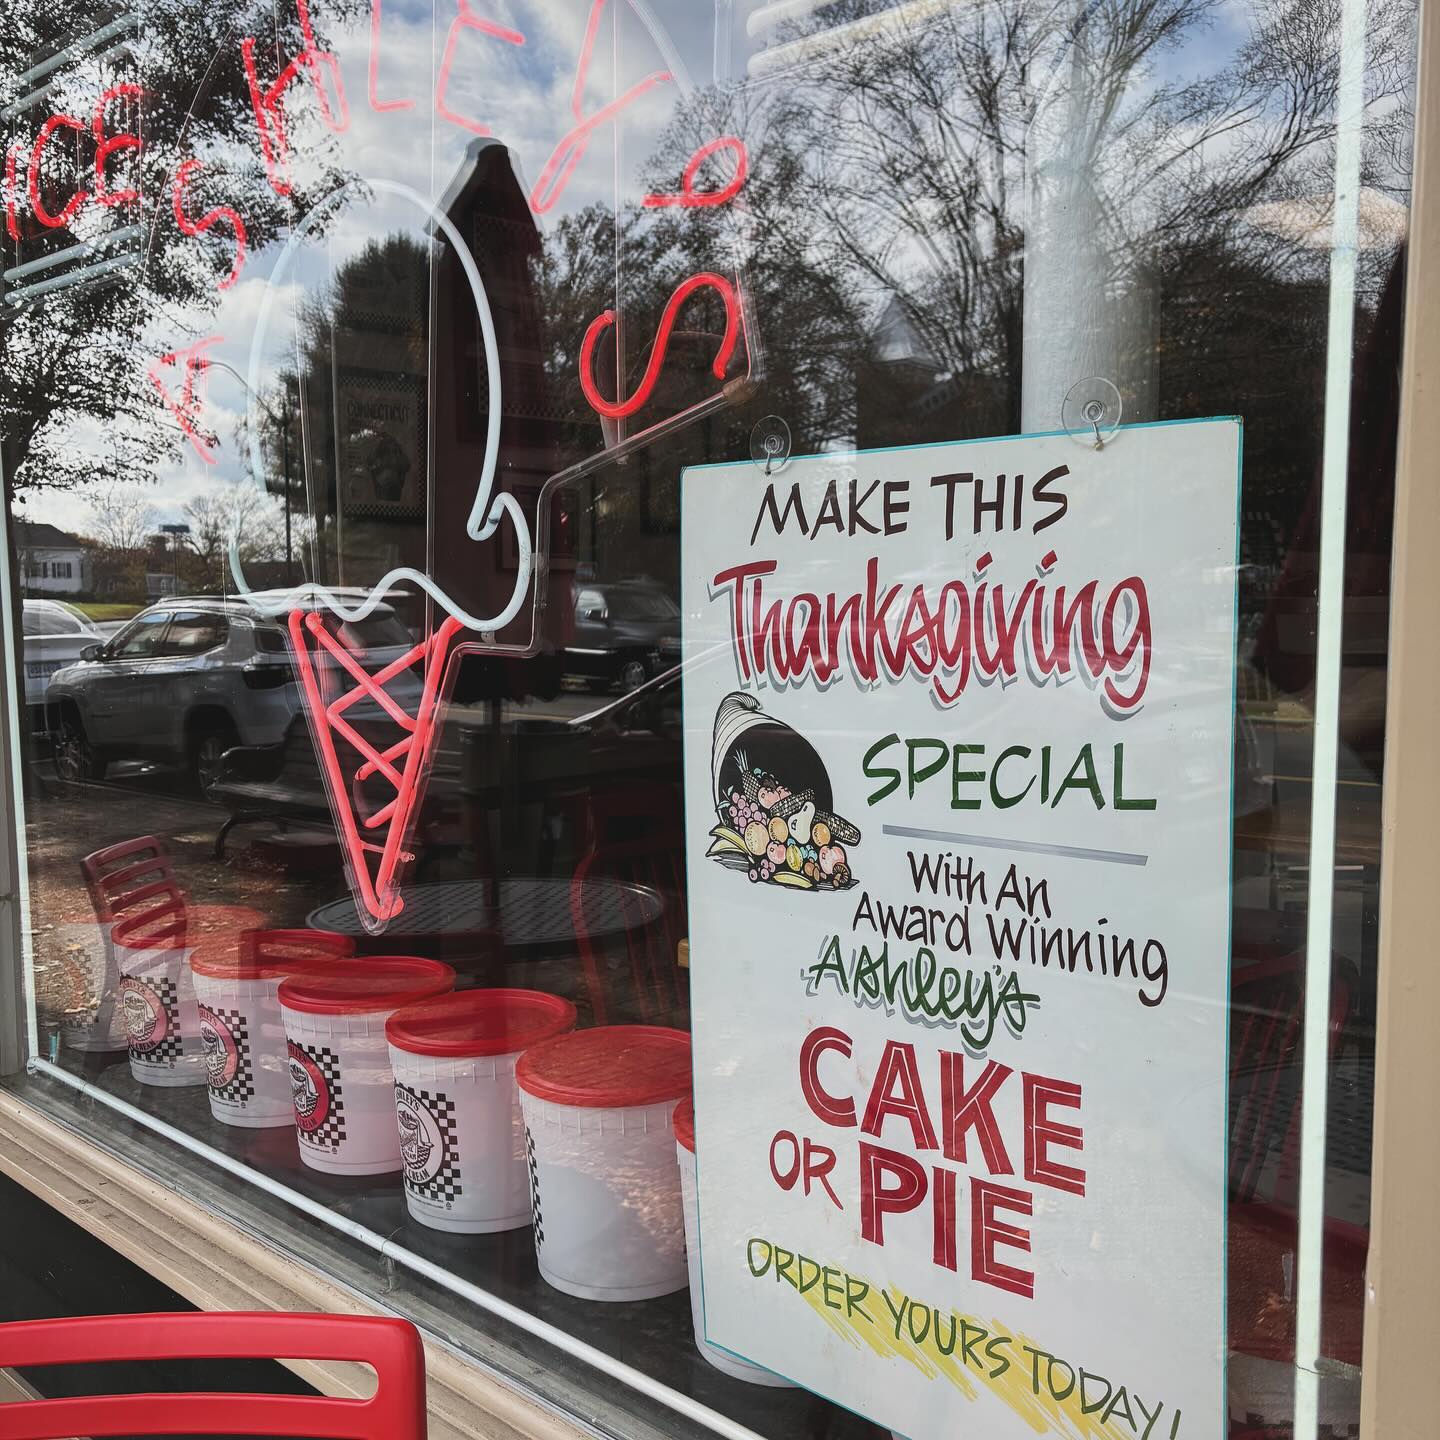 ASHLEY'S
ICE
CONNECTICUT
MAKE THIS
Thanksgiving
SPECIAL
With An
Award Winning
Ashley's
CAKE
OR PIE
ORDER YOURS TODAY!